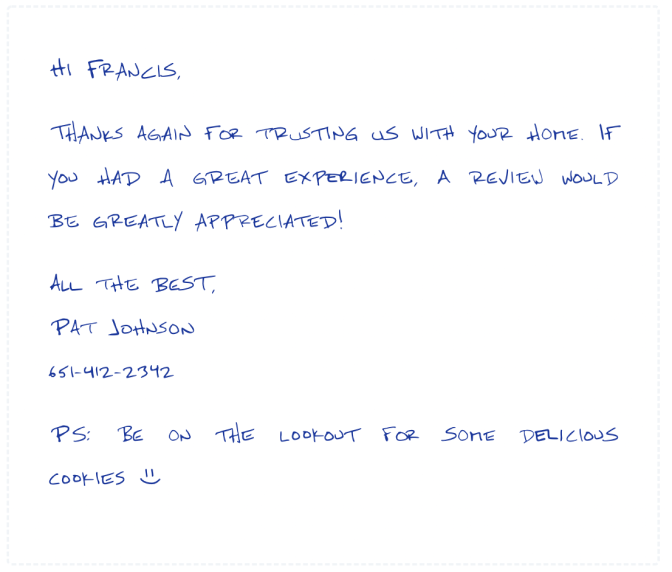 Hi Francis,
Thanks again for trusting us with your home. If
you had a great experience, a review would
be greatly appreciated!
All the best,
Pat Johnson
651-412-2342
PS: Be on the lookout for some delicious
cookies :)